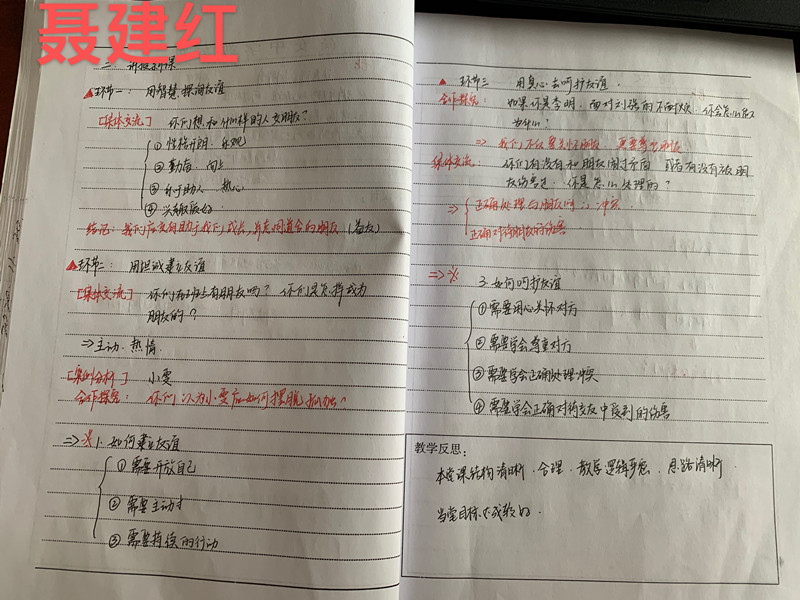 聂建红
二、讲授新课
▲环节一：用智慧探询友谊
[集体交流] 你们想和什么样的人交朋友？
① 性格开朗、乐观
② 勤奋、向上
③ 乐于助人、热心
④ 兴趣
结论：我们应交有助于我们成长，志同道合的朋友（益友）
▲环节二：用坦诚建立友谊
[集体交流] 你们在班上有朋友吗？你们是怎样成为
朋友的？
⇒主动、热情
[案例分析] 小雯
合作探究：你们认为小雯应如何摆脱孤独？
⇒※ 1. 如何建立友谊
① 需要开放自己
② 需要主动
③ 需要持续的行动
▲环节三 用真心去呵护友谊.
合作探究：如果你是李明，面对刘强的不耐烦，你会怎么
为什么？
⇒ 我们不仅要关怀朋友，更要尊重朋友
集体交流：你们有没有和朋友闹过矛盾，或者有没有被朋
友伤害过，你是怎么处理的？
⇒ 正确处理与朋友间的冲突
正确对待朋友的伤害
⇒※ 3. 如何呵护友谊
① 需要用心关怀对方
② 需要学会尊重对方
③ 需要学会正确处理冲突
④ 需要学会正确对待交友中受到的伤害
教学反思：
本堂课结构清晰、合理，教学逻辑，思路清晰.
当堂目标达成较好.